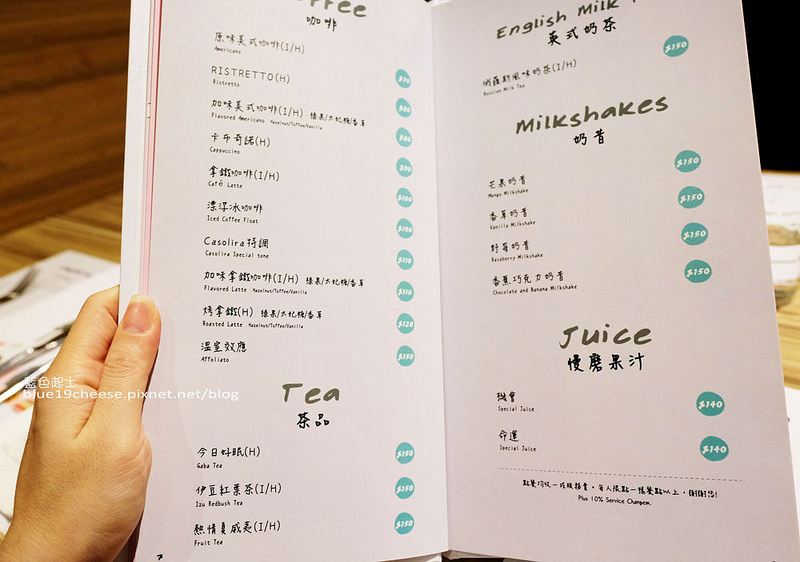 Coffee
咖啡
原味美式咖啡(I/H)
Americano
RISTRETTO(H)
Ristretto
加味美式咖啡(I/H) 榛果/太妃糖/香草
Flavored Americano Hazelnut/Toffee/Vanilla
$80
卡布奇諾(H)
Cappuccino
$90
拿鐵咖啡(I/H)
Café Latte
$100
漂浮冰咖啡
Iced Coffee Float
$100
Casolira特調
Casolira Special tone
$110
加味拿鐵咖啡(I/H) 榛果/太妃糖/香草
Flavored Latte Hazelnut/Toffee/Vanilla
$110
烤拿鐵(H) 榛果/太妃糖/香草
Roasted Latte Hazelnut/Toffee/Vanilla
$120
溫室效應
Affoliato
$150
Tea
茶品
今日好眠(H)
Gaba Tea
$150
伊豆紅葉茶(I/H)
Izu Redbush Tea
$150
熱情夏威夷(I/H)
Fruit Tea
$150
English Milk
英式奶茶
$150
俄羅斯風味奶茶(I/H)
Russian Milk Tea
Milkshakes
奶昔
$150
芒果奶昔
Mango Milkshake
$150
香草奶昔
Vanilla Milkshake
$150
野莓奶昔
Raspberry Milkshake
$150
香蕉巧克力奶昔
Chocolate and Banana Milkshake
Juice
慢磨果汁
機會
Special Juice
$140
命運
Special Juice
$140
Plus 10% Service
藍色起士
blue19cheese.pixnet.net/blog